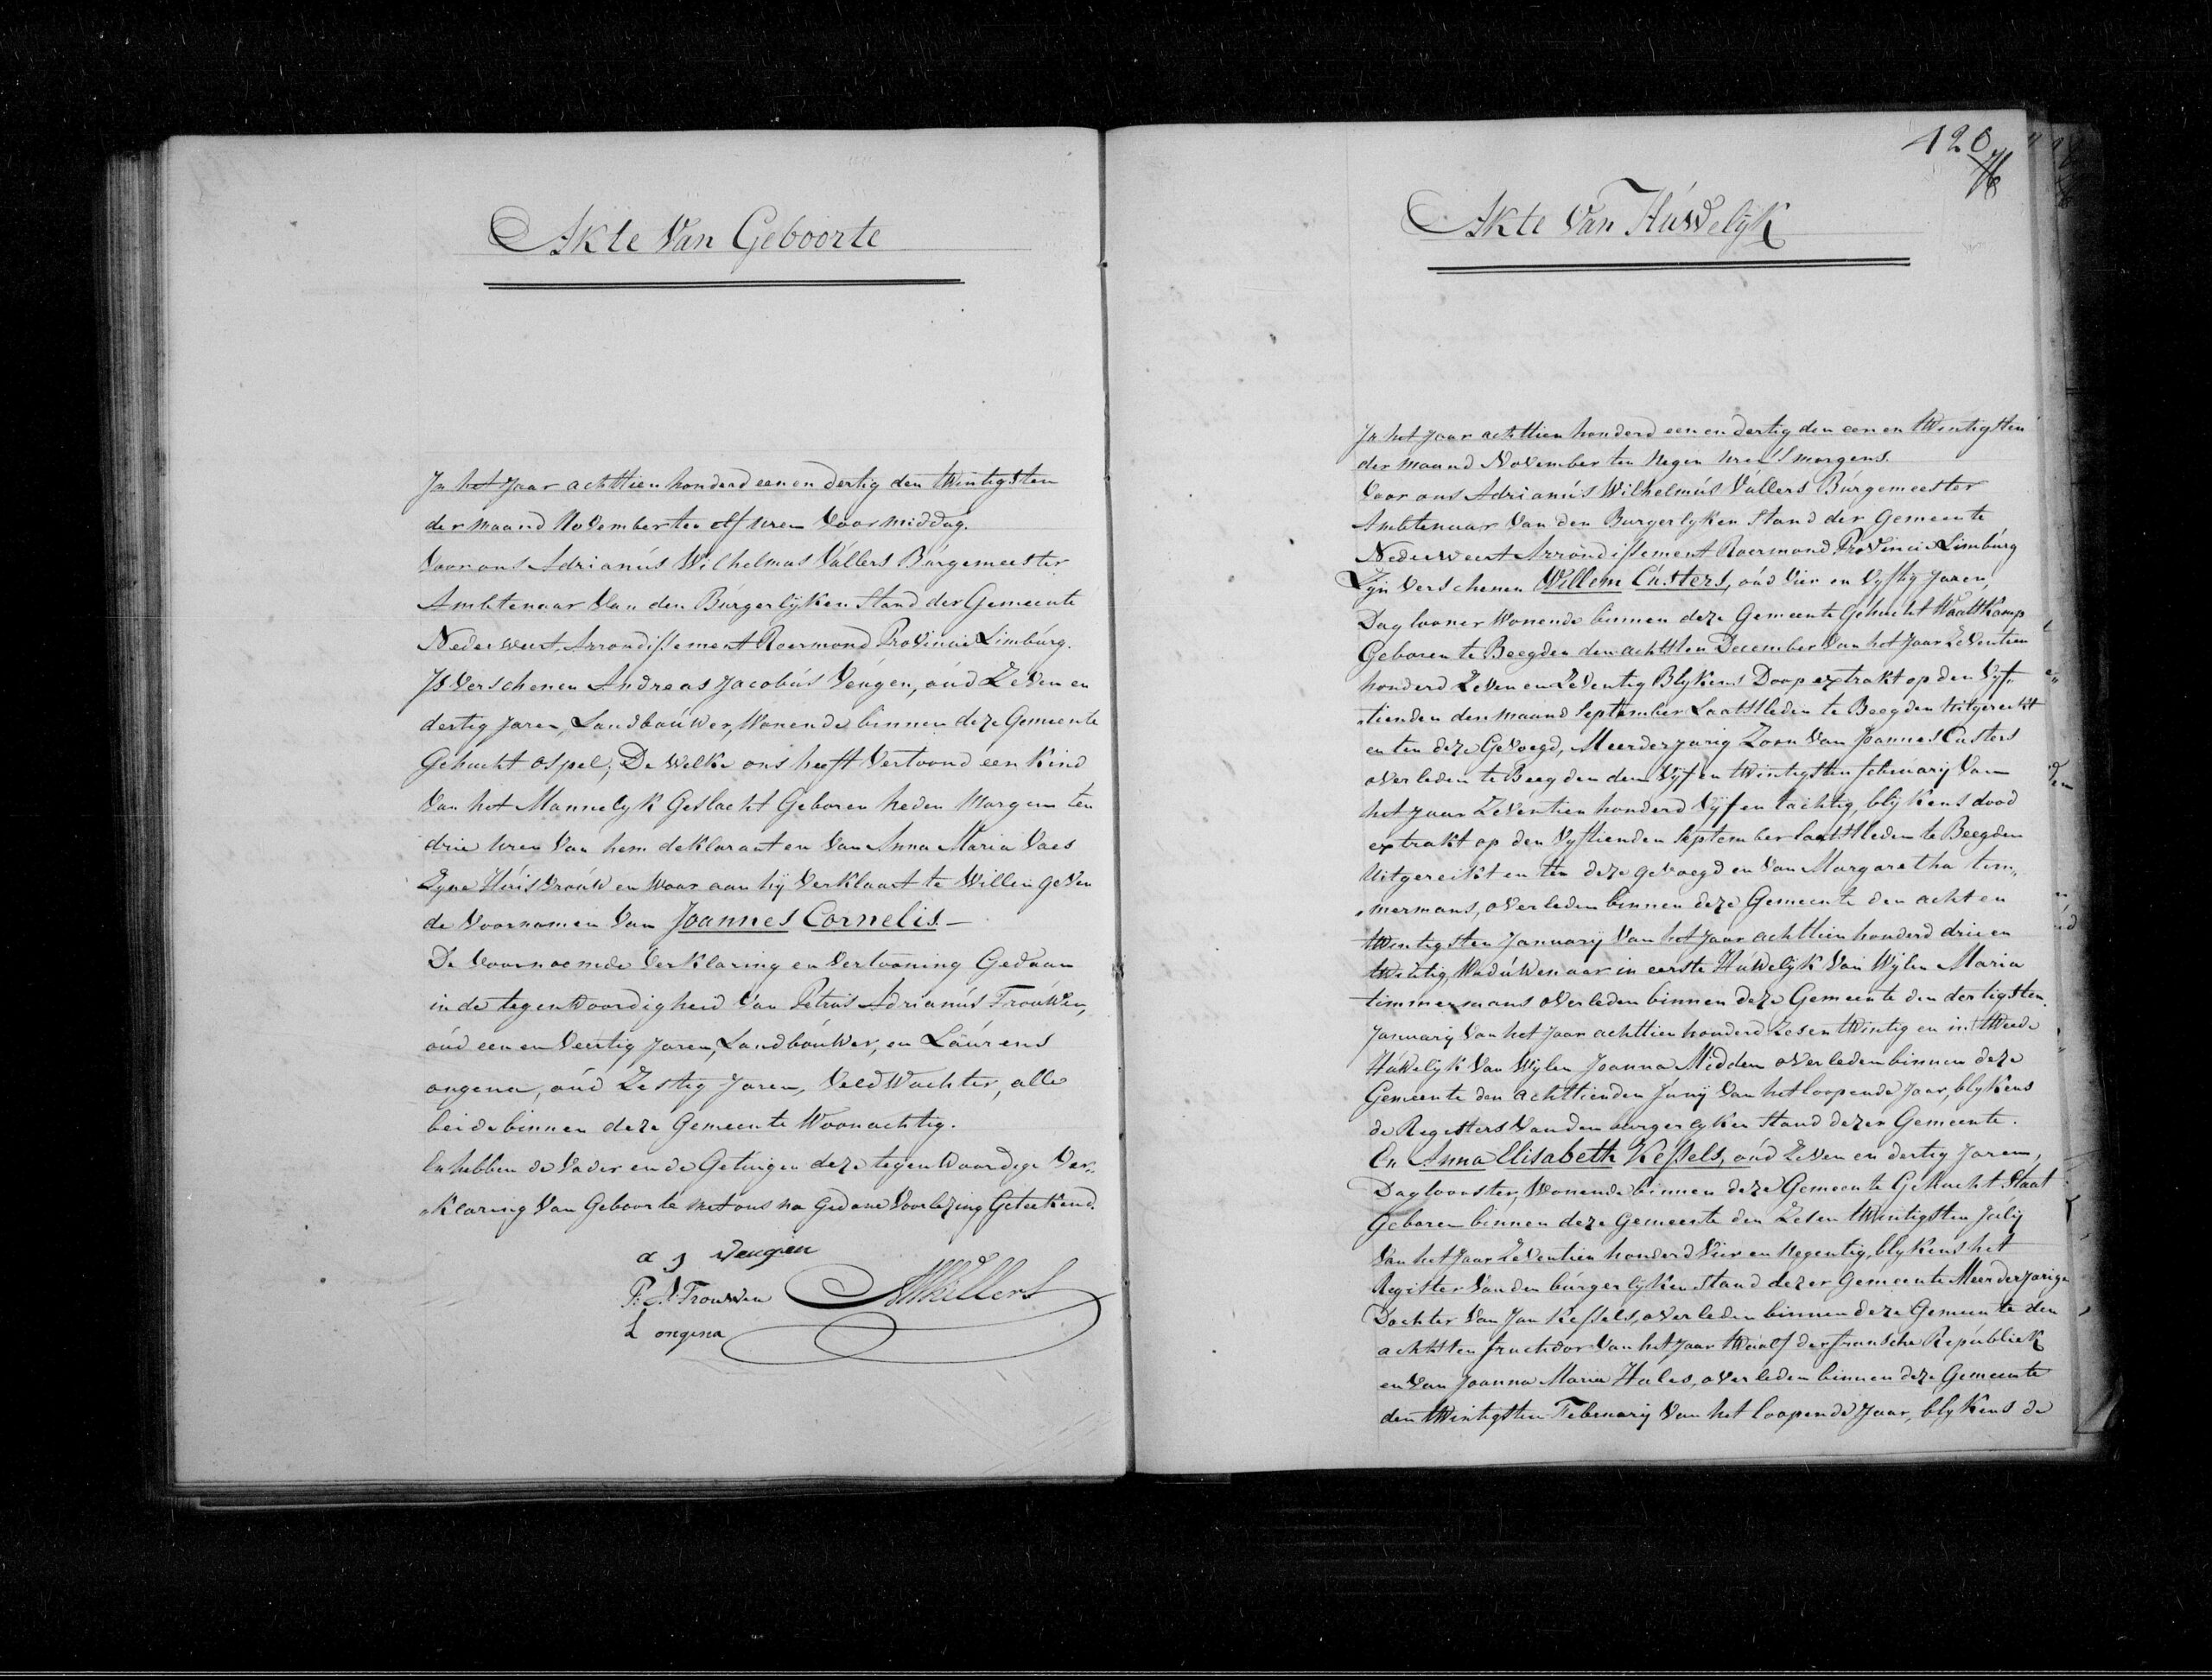 Akte Van Geboorte
In het Jaar achttien honderd een en dertig den twintigsten
der maand November ten elf uren Voor middag.
Voor ons Adrianus Wilhelmus Vullers Burgemeester
Ambtenaar Van den Burgerlyken Stand der Gemeente
Nederweert, Arrondissement Roermond Provincie Limburg.
Is Verschenen Andreas Jacobus Veugen, oud Zeven en
dertig Jaren, Landbouwer, Wonende binnen deze Gemeente
Gehucht ospel; De Welke ons heeft Vertoond een Kind
Van het Mannelyk Geslacht Geboren heden Morgen ten
drie uren Van hem deklarant en Van Anna Maria Vaes
Zyne Huisvrouw en Waar aan hij Verklaart te Willen geven
de Voornamen Van Joannes Cornelis. —
De Voornoemde Verklaring en Vertooning Gedaan
in de tegenwoordigheid Van Petrus Adrianus Trouwen,
oud een en Veertig Jaren, Landbouwer, en Laurens
ongena, oud Zestig Jaren, Veldwachter, alle
beide binnen deze Gemeente Woonachtig.
En hebben de Vader en de Getuigen deze tegenwoordige Ver„
„klaring Van Geboorte met ons na gedane Voorlezing Geteekend.
a J veugen
P. A. Trouwen AWVullers
L ongena
120
Akte Van Huwelyk
In het Jaar achttien honderd een en dertig den een en twintigsten
der maand November ten Negen uren S'morgens.
Voor ons Adrianus Wilhelmus Vullers Burgemeester
Ambtenaar Van den Burgerlyken Stand der Gemeente
Nederweert Arrondissement Roermond Provincie Limburg
Zyn Verschenen Willem Custers, oud Vier en Vyftig Jaren,
Daglooner Wonende binnen deze Gemeente Gehucht Waatskamp
Geboren te Beegden den achtsten December Van het Jaar Zeventien
honderd Zeven en Zeventig Blykens Doop extrakt op den Vyf„
„tienden der maand September Laatstleden te Beegden uitgereikt
en ten deze Gevoegd, Meerderjarig Zoon Van Joannes Custers
overleden te Beegden den Vyf en twintigsten february Van
het Jaar Zeventien honderd Vyf en tachtig, blykens dood
extrakt op den Vyftienden September laatstleden te Beegden
Uitgereikt en ten deze gevoegd en Van Margaretha tim„
„mermans, overleden binnen deze Gemeente den acht en
twintigsten January Van het Jaar achttien honderd drie en
twintig, Weduwenaar in eerste Huwelyk Van Wylen Maria
timmermans overleden binnen deze Gemeente den dertigsten
January Van het Jaar achttien honderd Zes en twintig en in tweede
Huwelyk Van Wylen Joanna Midden overleden binnen deze
Gemeente den achttienden Juny Van het loopende Jaar, blykens
de Registers Van den burgerlyken Stand dezer Gemeente.
En Anna Elisabeth Kessels, oud Zeven en dertig Jaren,
Dagloonster, Wonende binnen deze Gemeente Gehucht Staat
Geboren binnen deze Gemeente den Zes en twintigsten July
Van het Jaar Zeventien honderd Vier en Negentig, blykens het
Register Van den burgerlyken Stand dezer Gemeente Meerderjarige
Dochter Van Jan Kessels, overleden binnen deze Gemeente den
achtsten fructidor Van het Jaar twaalf der fransche Republiek
en Van Joanna Maria Hales, overleden binnen deze Gemeente
den twintigsten February Van het loopende Jaar, blykens de